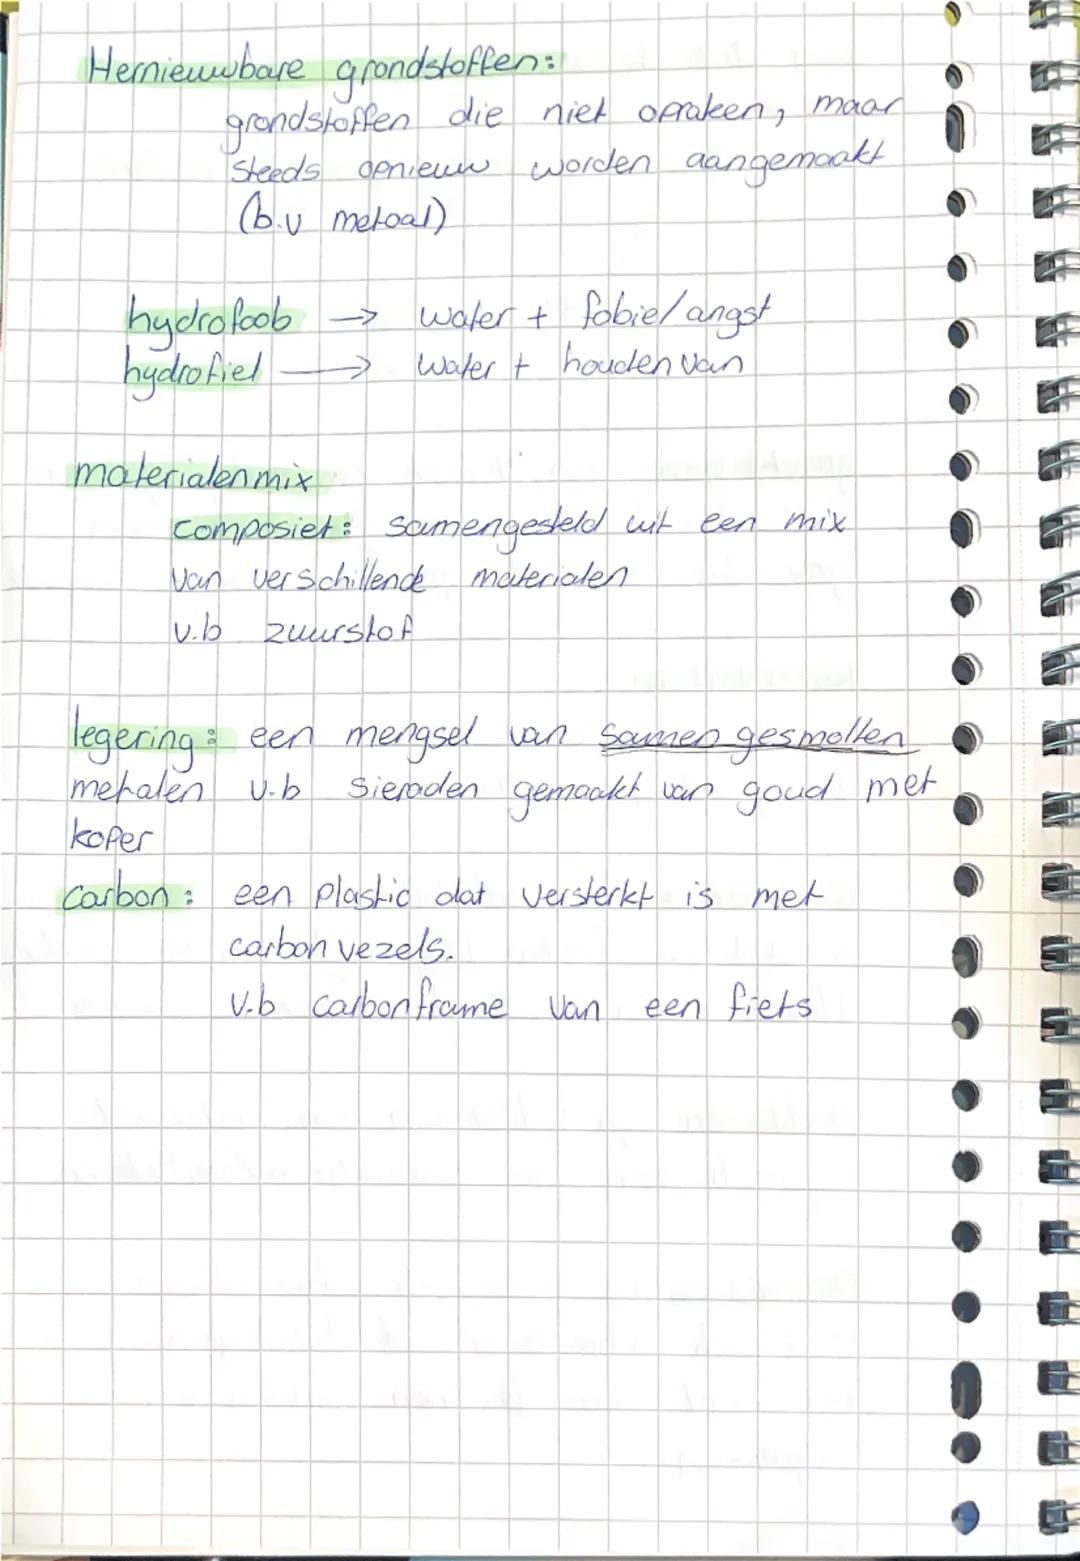 Hernieuwbare grondstoffen:
grondstoffen die niet opraken, maar
steeds opnieuw worden aangemaakt
(b.v metaal)
hydrofoob → water + fobie/angst
hydrofiel → water + houden van
materialenmix
composiet: samengesteld uit een mix
van verschillende materialen
v.b zuurstof
legering: een mengsel van samen gesmolten
metalen v.b sieraden gemaakt van goud met
koper
carbon: een plastic dat versterkt is met
carbon vezels.
v.b carbonframe van een fiets